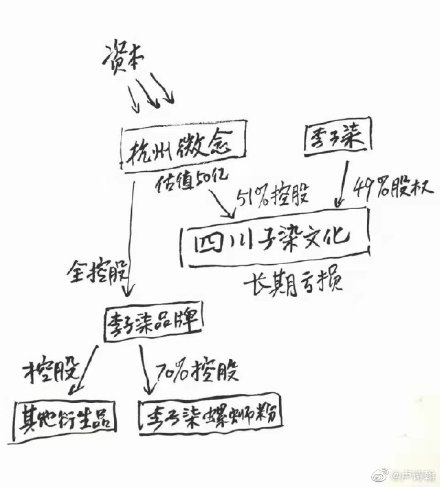 资本
杭州微念
估值50亿
李子柒
51%控股
49%股权
四川子柒文化
长期亏损
全控股
李子柒品牌
控股
70%控股
其他衍生品
李子柒螺蛳粉
@卢诗翰